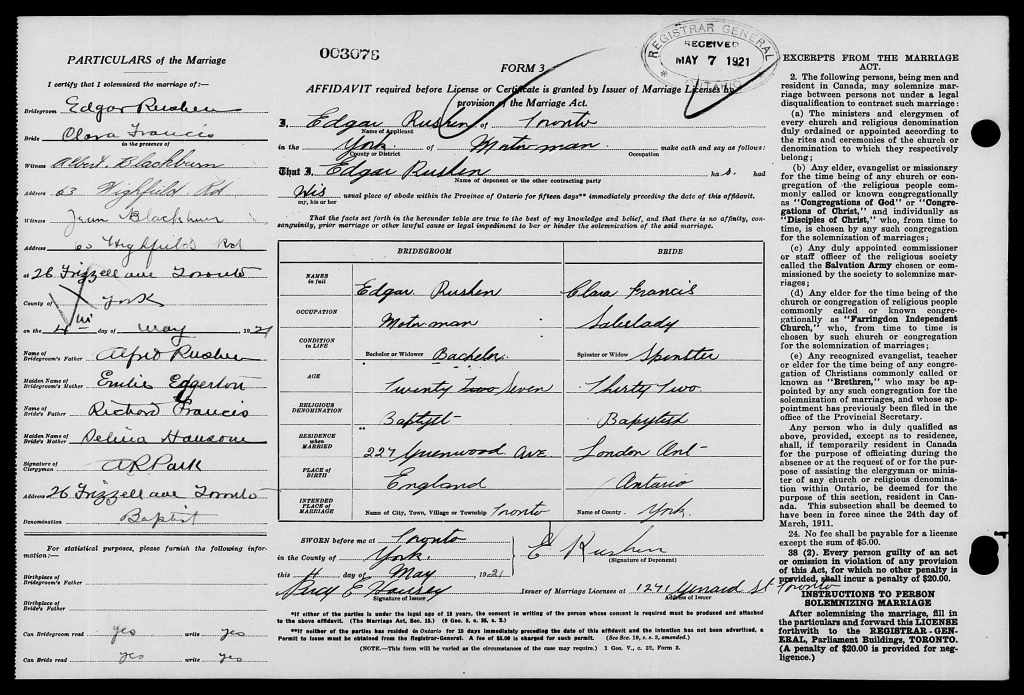 003076
REGISTRAR GENERAL
RECEIVED
MAY 7 1921
ONTARIO
PARTICULARS of the Marriage
I certify that I solemnized the marriage of:—
Bridegroom Edgar Rushen
Bride Clara Francis
in the presence of
Witness Albert Blackburn
Address 63 Highfield Rd
Witness Jean Blackburn
Address 60 Highfield Rd
at 26 Frizzell ave Toronto
County of York
on the 4th day of May 1921
Name of Bridegroom's Father Alfred Rushen
Maiden Name of Bridegroom's Mother Emilie Edgerton
Name of Bride's Father Richard Francis
Maiden Name of Bride's Mother Delina Hansom
Signature of Clergyman A R Park
Address 26 Frizzell ave Toronto
Denomination Baptist
For statistical purposes, please furnish the following information:—
Birthplace of Bridegroom's Father
Birthplace of Bridegroom's Mother
Can Bridegroom read yes write yes
Can Bride read yes write yes
FORM 3
AFFIDAVIT required before License or Certificate is granted by Issuer of Marriage Licenses by
provision of the Marriage Act.
I, Edgar Rushen of Toronto
Name of Applicant
in the York of Motorman make oath and say as follows:
County or District Occupation
That I, Edgar Rushen has had
Name of deponent or the other contracting party
His usual place of abode within the Province of Ontario for fifteen days** immediately preceding the date of this affidavit.
my, his or her
That the facts set forth in the hereunder table are true to the best of my knowledge and belief, and that there is no affinity, consanguinity, prior marriage or other lawful cause or legal impediment to bar or hinder the solemnization of the said marriage.
BRIDEGROOM BRIDE
NAMES in full Edgar Rushen Clara Francis
OCCUPATION Motorman Saleslady
CONDITION in LIFE Bachelor or Widower Bachelor Spinster or Widow Spinster
AGE Twenty Two Seven Thirty Two
RELIGIOUS DENOMINATION Baptist Baptist
RESIDENCE when MARRIED 227 Greenwood Ave. London Ont
PLACE OF BIRTH England Ontario
INTENDED PLACE OF MARRIAGE Name of City, Town, Village or Township Toronto Name of County. York
SWORN before me at Toronto
in the County of York
E Rushen
(Signature of Deponent)
this 4 day of May 1921
Signature of Issuer
Issuer of Marriage Licenses at 1271 Gerrard St Toronto
Address of Issuer
*If either of the parties is under the legal age of 18 years, the consent in writing of the person whose consent is required must be produced and attached
to the above affidavit. (The Marriage Act, Sec. 15.) (9 Geo. 5, c. 35, s. 2.)
**If neither of the parties has resided in Ontario for 15 days immediately preceding the date of this affidavit and the intention has not been advertised, a
Permit to issue must be obtained from the Registrar-General. A fee of $5.00 is charged for such permit. (See Sec. 19, s.s. 2, amended.)
(NOTE.—This form will be varied as the circumstances of the case may require.) 1 Geo. V., c. 32, Form 3.
EXCERPTS FROM THE MARRIAGE
ACT.
2. The following persons, being men and
resident in Canada, may solemnize mar-
riage between persons not under a legal
disqualification to contract such marriage:
(a) The ministers and clergymen of
every church and religious denomination
duly ordained or appointed according to
the rites and ceremonies of the church or
denomination to which they respectively
belong;
(b) Any elder, evangelist or missionary
for the time being of any church or con-
gregation of the religious people com-
monly called or known congregationally
as "Congregations of God" or "Congre-
gations of Christ," and individually as
"Disciples of Christ," who, from time to
time, is chosen by any such congregation
for the solemnization of marriages;
(c) Any duly appointed commissioner
or staff officer of the religious society
called the Salvation Army chosen or com-
missioned by the society to solemnize mar-
riages;
(d) Any elder for the time being of the
church or congregation of religious people
commonly called or known congre-
gationally as "Farringdon Independent
Church," who, from time to time is
chosen by such church or congregation
for the solemnization of marriages;
(e) Any recognized evangelist, teacher
or elder for the time being of any congre-
gation of Christians commonly called or
known as "Brethren," who may be ap-
pointed by any such congregation for the
solemnization of marriages, and whose
appointment has previously been filed in the
office of the Provincial Secretary.
Any person who is duly qualified as
above, provided, except as to residence,
shall, if temporarily resident in Canada
for the purpose of officiating during the
absence or at the request of or for the pur-
pose of assisting the clergyman or minis-
ter of any church or religious denomina-
tion within Ontario, be deemed for the
purpose of this section, resident in Can-
ada. This subsection shall be deemed to
have been in force since the 24th day of
March, 1911.
24. No fee shall be payable for a license
except the sum of $5.00.
38 (2). Every person guilty of an act
or omission in violation of any provision
of this Act, for which no other penalty is
provided, shall incur a penalty of $20.00.
INSTRUCTIONS TO PERSON
SOLEMNIZING MARRIAGE
After solemnizing the marriage, fill in
the particulars and forward this LICENSE
forthwith to the REGISTRAR-GEN-
ERAL, Parliament Buildings, TORONTO.
(A penalty of $20.00 is provided for neg-
ligence.)